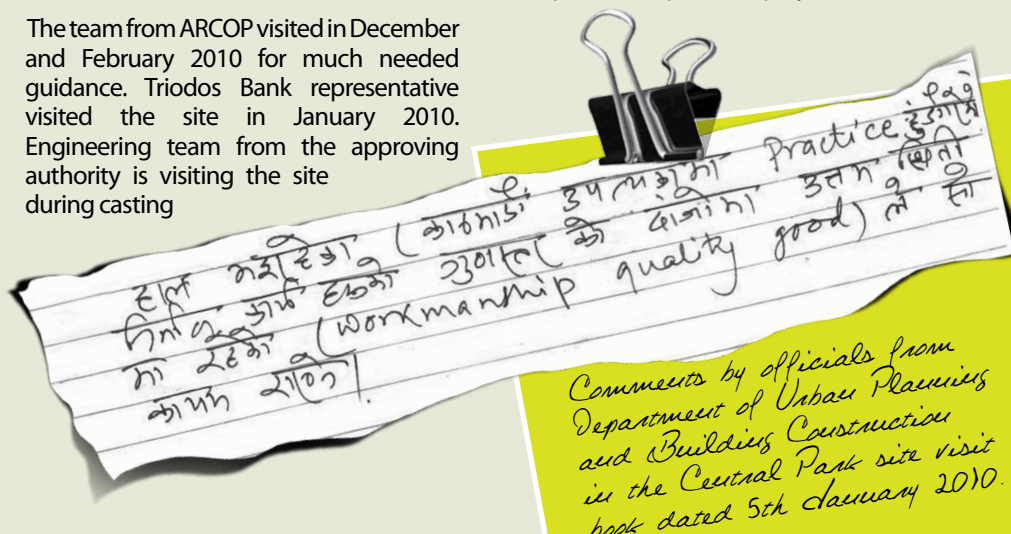 The team from ARCOP visited in December
and February 2010 for much needed
guidance. Triodos Bank representative
visited the site in January 2010.
Engineering team from the approving
authority is visiting the site
during casting
हाल (काठमाडौं उपत्यकामा Practice
निर्माण कार्य हरुको गुणस्तर को दाँजोमा उत्तम स्थिती
मा रहेको (Workmanship quality good) ले सो
कायम
Comments by officials from
Department of Urban Planning
and Building Construction
in the Central Park site visit
book dated 5th January 2010.